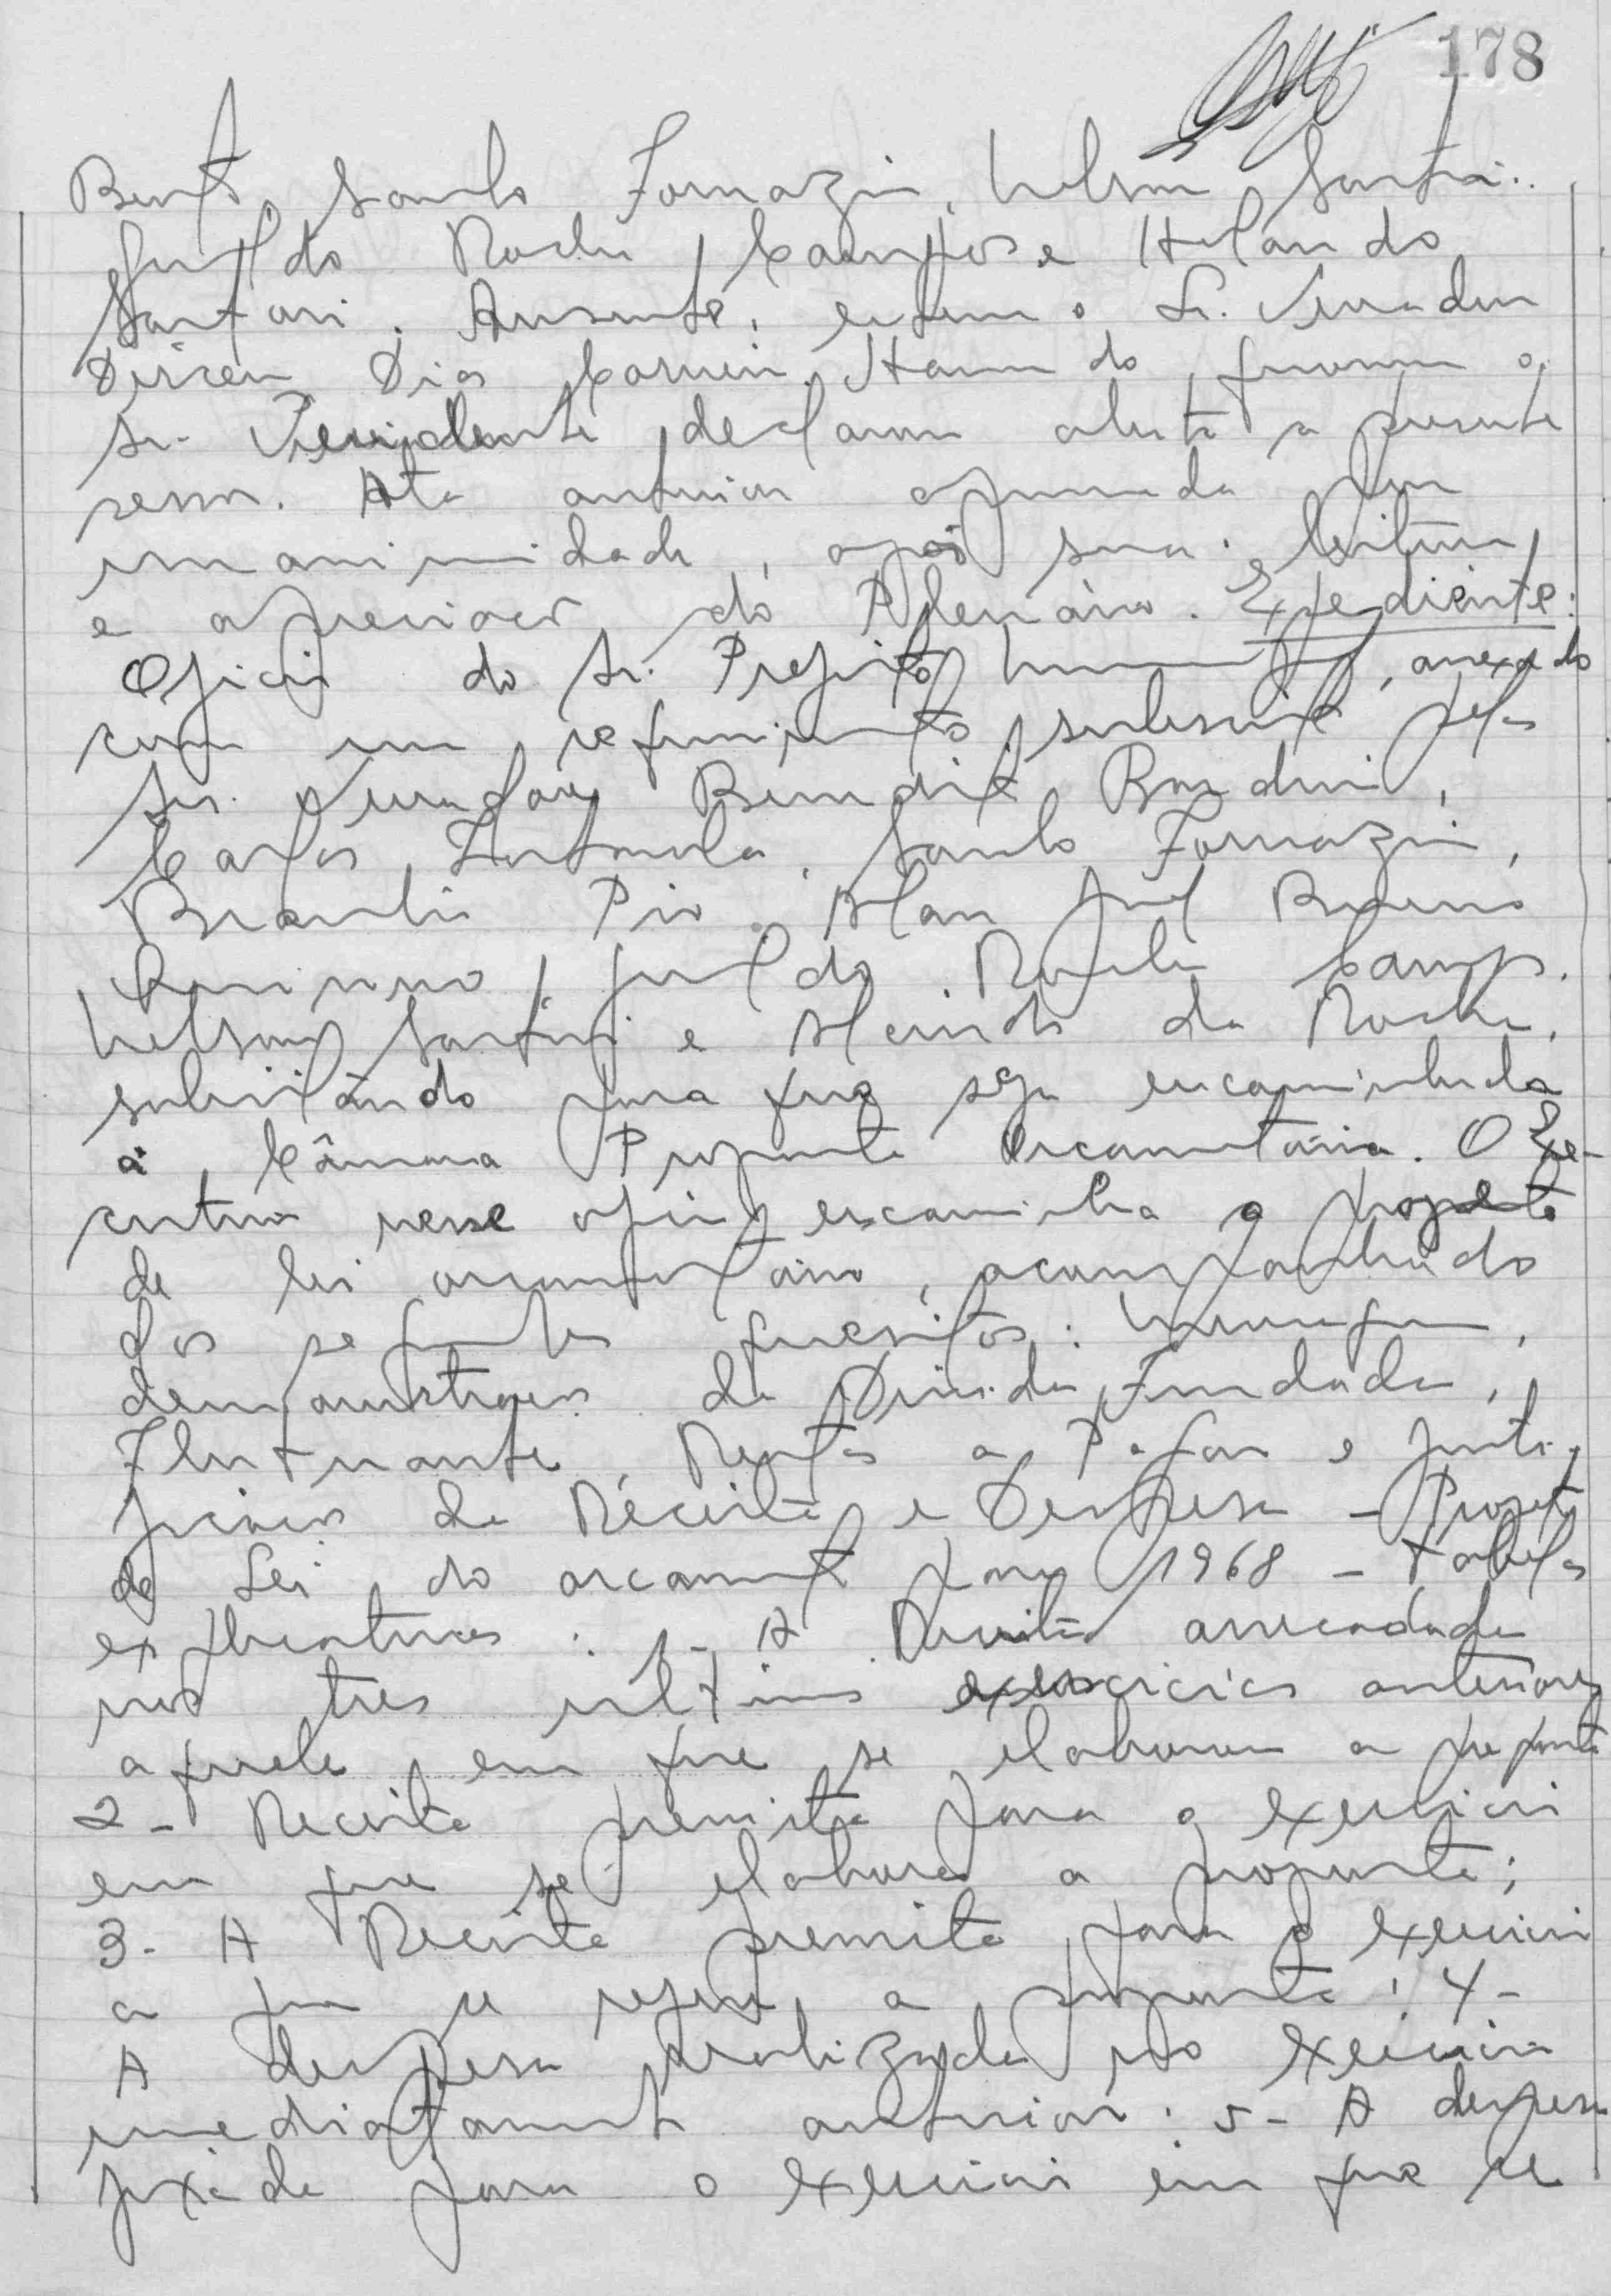 178
Bento, Santo Fornazin, Nelson Santi..
José da Rocha Campos e Orlando
Santari. Ausente, esteve o Sr. Vereador
Dirceu Dias Carneiro. Havendo quorum o
Sr. Presidente declarou aberta a presente
sessão. Ata anterior aprovada por
unanimidade, após sua leitura
e apreciação do Plenário. Expediente:
Oficio do Sr. Prefeito Municipal, anexado
com um requerimento subscrito pelos
Srs. Vereadores Benedito Bardini,
Carlos Santo Fornazin,
Brasilio Pio, Alan José Bueno
José da Rocha Campos,
Nelson Santini e Alcindo da Rocha,
solicitando para que seja encaminhada
à Câmara Proposta Orcamentária. O Exe-
cutivo nesse oficio encaminha o projeto
de lei orcamentário, acompanhado
dos seguintes quesitos: Mensagem,
demonstração da Divida Fundada,
Flutuante, Restos a Pagar e justi-
ficação da Receita e Despesa - Projeto
de Lei do orcamento para 1968 - tabelas
explicativas: 1- A Receita arrecadada
nos tres ultimos exercicios anteriores
aquele em que se elaborou a proposta
2- Receita prevista para o exercicio
em que se elabora a proposta;
3- A Receita prevista para o exercicio
a que se refere a proposta; 4-
A despesa realizada no exercicio
imediatamente anterior: 5- A despesa
fixada para o exercicio em que se